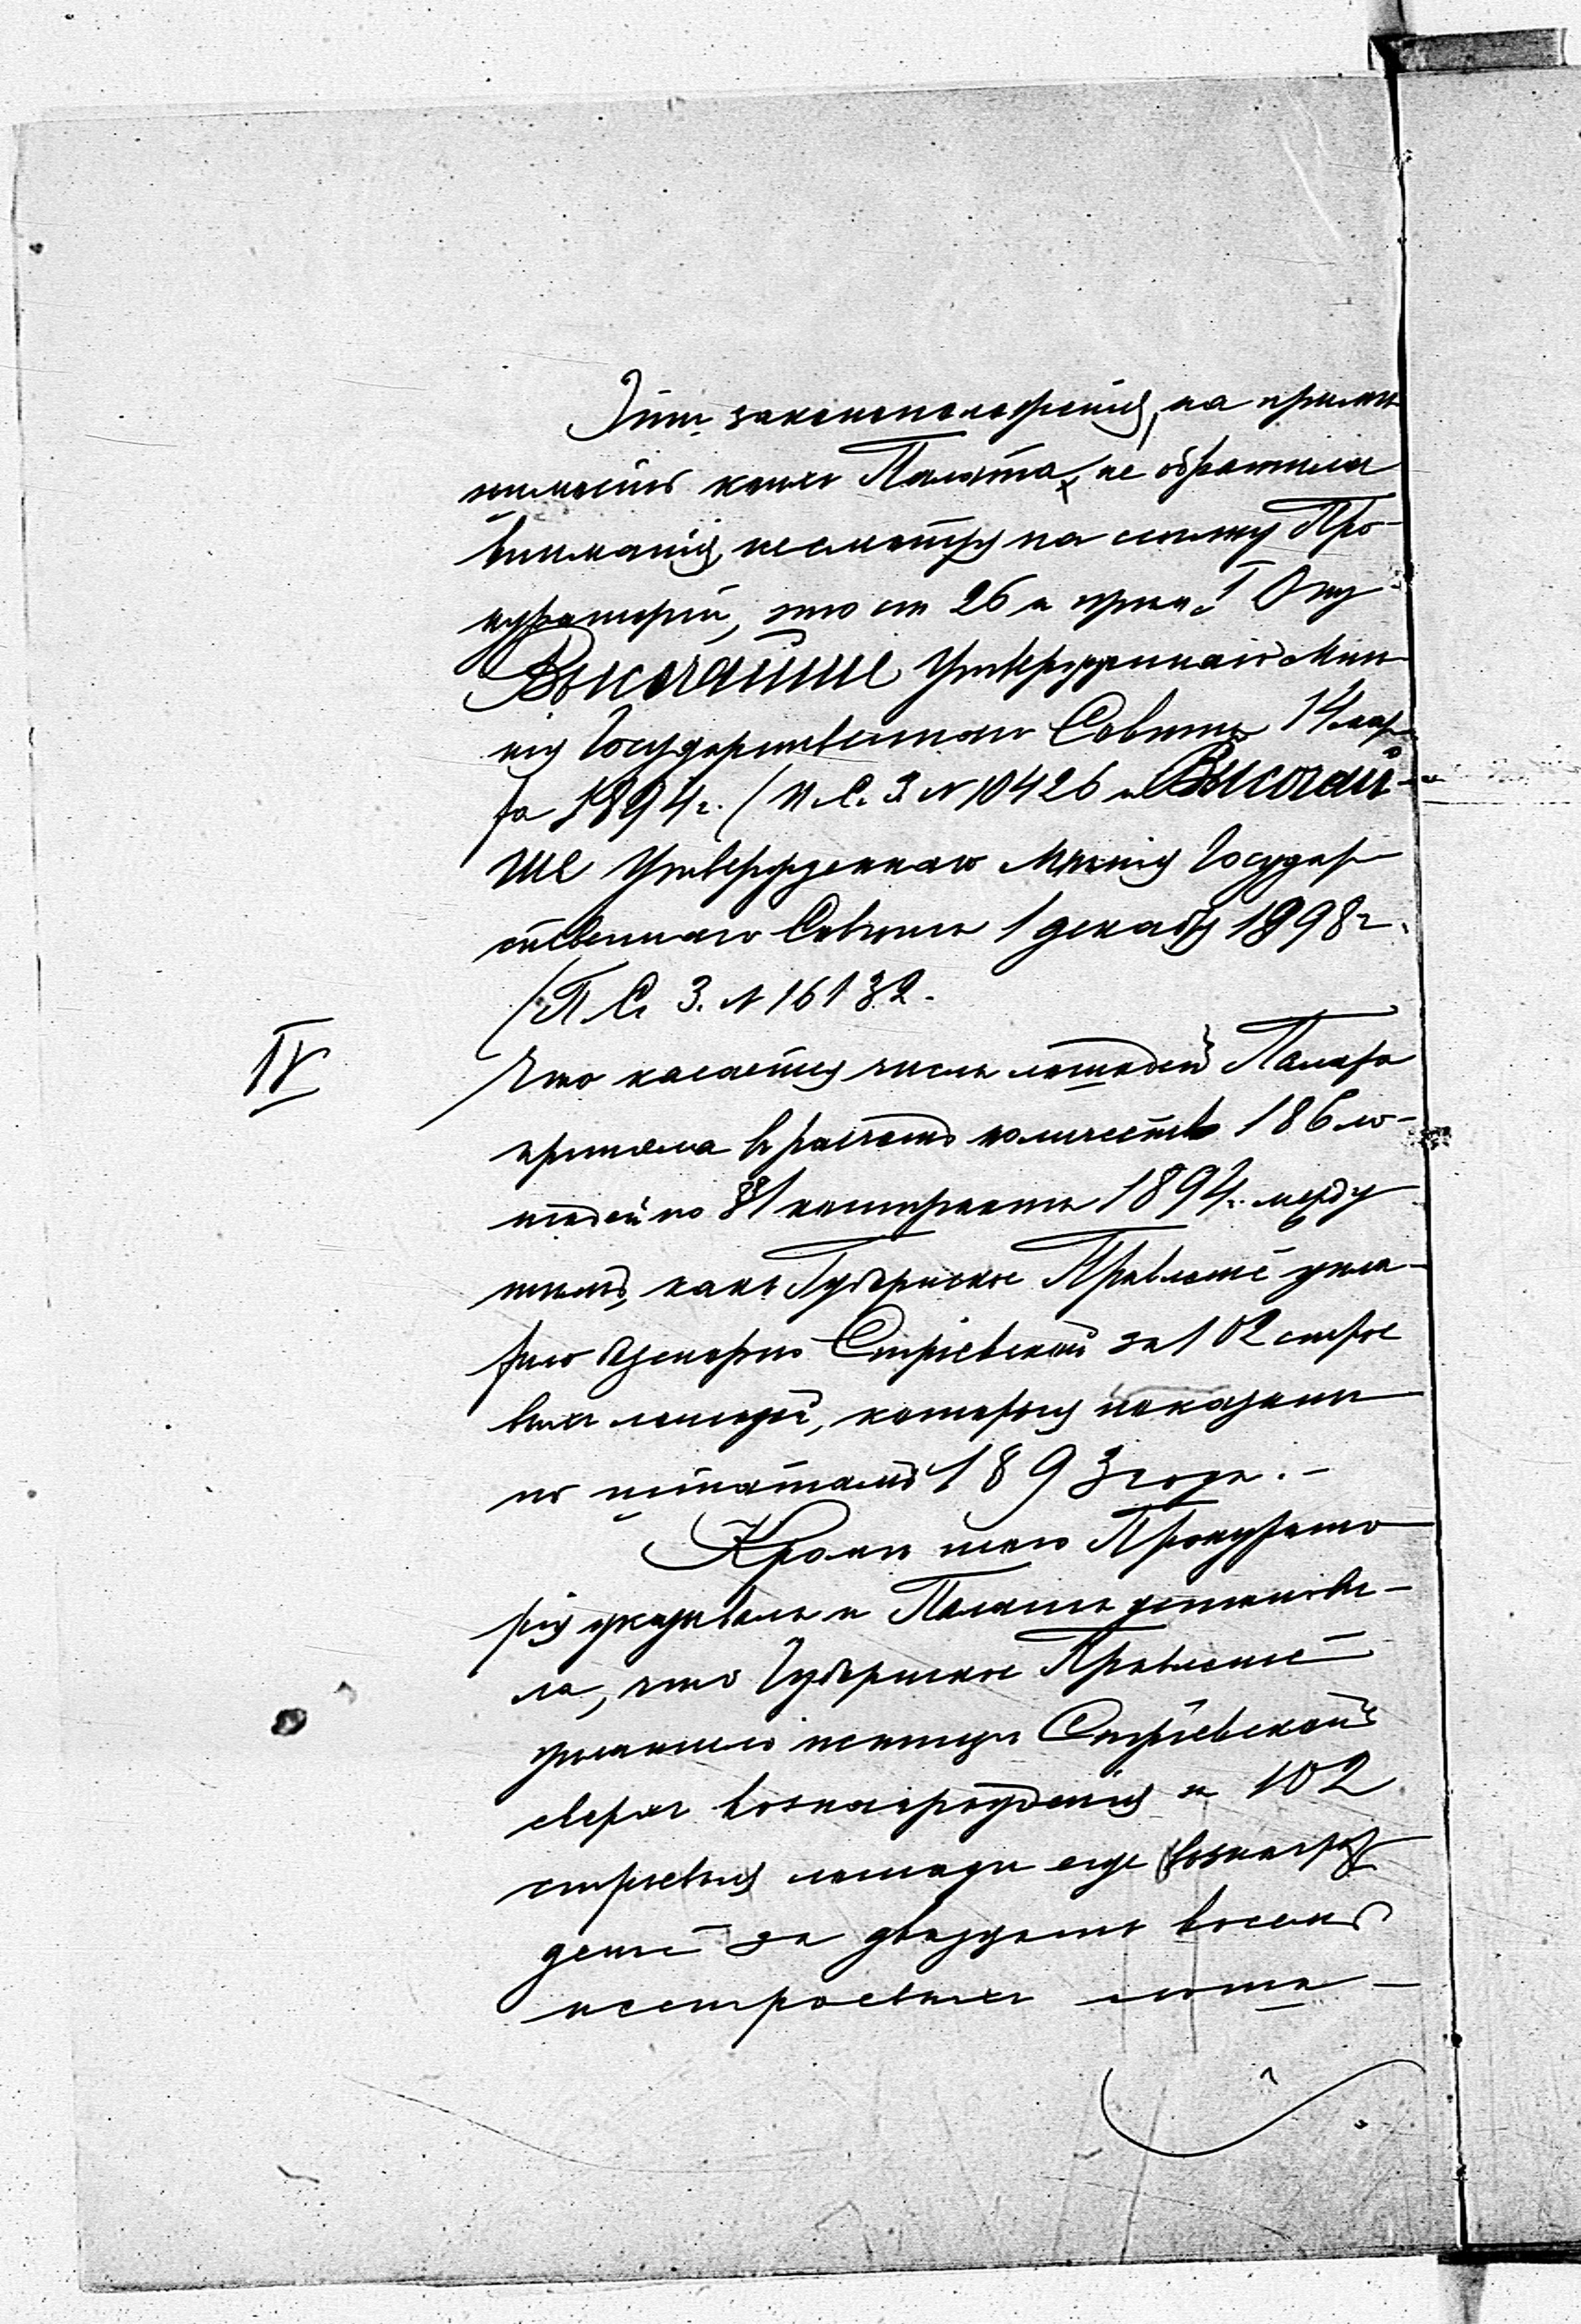 Эти законоположенія, на примѣ-
нимость коихъ Палата не обратила
вниманія, несмотря на ссылку Про-
куратеріи, это ст 26 и прим. I
Высочайше Утвержденнаго Мнѣ-
нія Государственнаго Совѣта 14 мар-
та 1894 г. (П. С. З. N 10426 и Высочай-
ше Утвержденнаго Мнѣнія Государ-
ственнаго Совѣта 1 декабря 1898 г.
(П. С. З. N 16132.
IV
Что касается числа лошадей Палата
приняла въ расчетъ количество 186 ло-
шадей по § 1 контракта 1894 г. между
тѣмъ, какъ Губернское Правленіе упла-
тило Стріевской за 102 строе
выхъ лошадей, которыя показаны
по штатамъ 1893 года. -
Кромѣ того Прокурато-
рія указывала и Палата установи-
ла, что Губернское Правленіе
уплатило истицѣ Стріевской
сверхъ вознагражденія за 102
строевыя лошади еще вознаграж
деніе за двадцать восемь
нестроевыхъ лоша-